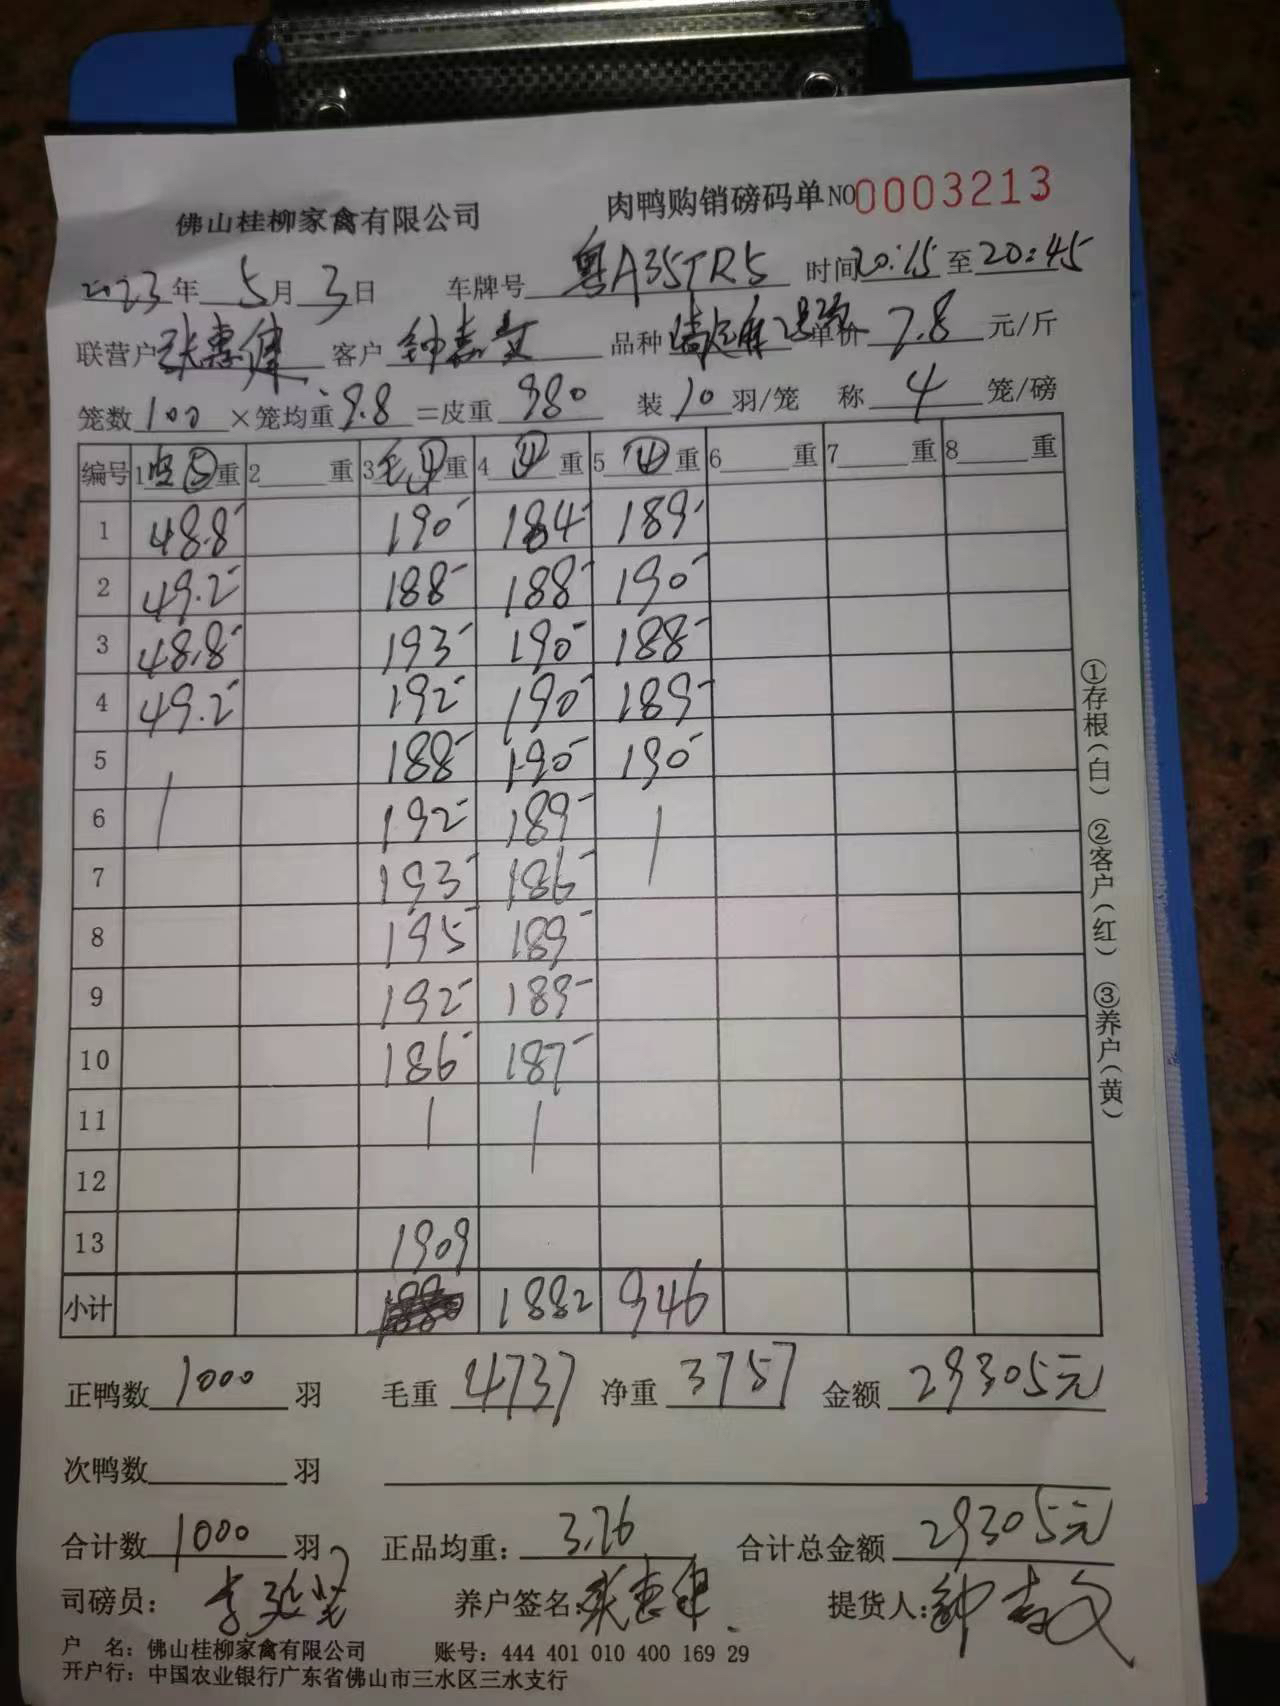 佛山桂柳家禽有限公司 肉鸭购销磅码单NO0003213
2023年 5月 3日 车牌号 粤A35TR5 时间20:15至20:45
联营户 张惠伟 客户 钟嘉文 品种 单价 7.8 元/斤
笼数 100 ×笼均重 9.8 =皮重 980 装 10 羽/笼 称 4 笼/磅
编号 1 空⑤重 2 重 3 毛④重 4 ④重 5 ④重 6 重 7 重 8 重
1 48.8 190 184 189
2 49.2 188 188 190
3 48.8 193 190 188
4 49.2 192 190 189
5 188 190 190
6 192 189
7 193 186
8 195 189
9 192 189
10 186 187
11
12
13 1909
小计 1882 946
正鸭数 1000 羽 毛重 4737 净重 3757 金额 29305元
次鸭数 羽
合计数 1000 羽 正品均重: 3.76 合计总金额 29305元
司磅员: 养户签名: 提货人: 钟嘉文
户 名: 佛山桂柳家禽有限公司 账号: 444 401 010 400 169 29
开户行: 中国农业银行广东省佛山市三水区三水支行
①存根(白) ②客户(红) ③养户(黄)